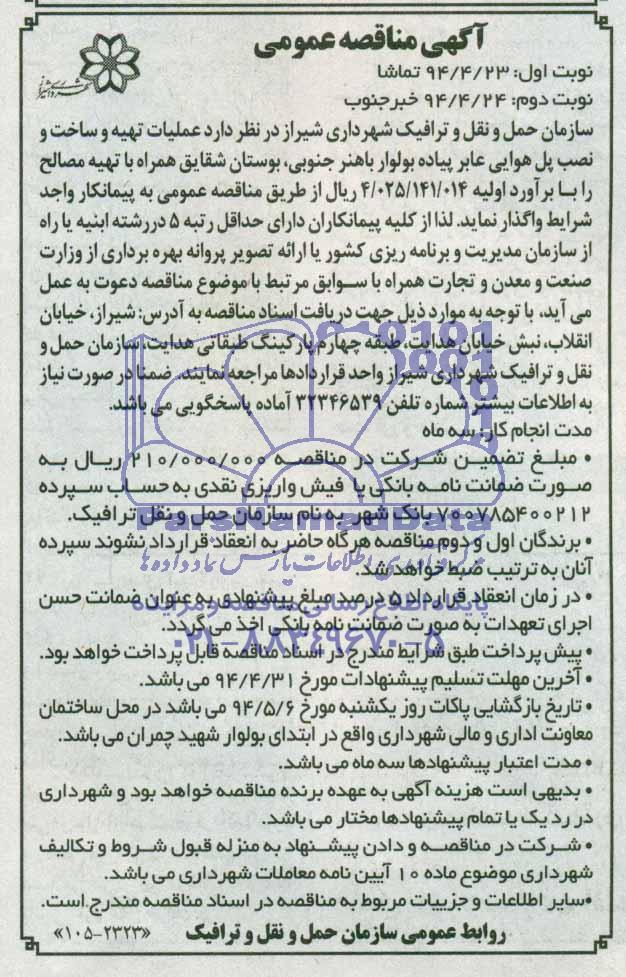 آگهی مناقصه عمومی
نوبت اول: ۹۴/۴/۲۳ تماشا
نوبت دوم: ۹۴/۴/۲۴ خبرجنوب
سازمان حمل و نقل و ترافیک شهرداری شیراز در نظر دارد عملیات تهیه و ساخت و
نصب پل هوایی عابر پیاده بولوار باهنر جنوبی، بوستان شقایق همراه با تهیه مصالح
را بـا بـرآورد اولیه ۴/۰۲۵/۱۴۱/۰۱۴ ریال از طریق مناقصه عمومی به پیمانکار واجد
شرایط واگذار نماید. لذا از کلیه پیمانکاران دارای حداقل رتبه ۵ دررشته ابنیه یا راه
از سازمان مدیریت و برنامه ریزی کشور یا ارائه تصویر پروانه بهره برداری از وزارت
صنعت و معدن و تجارت همراه با سـوابق مرتبط با موضوع مناقصه دعوت به عمل
می آید، با توجه به موارد ذیل جهت دریافت اسناد مناقصه به آدرس: شیراز، خیابان
انقلاب، نبش خیابان هدایت، طبقه چهارم پارکینگ طبقاتی هدایت، سازمان حمل و
نقل و ترافیک شهرداری شیراز واحد قراردادها مراجعه نمایند. ضمنا در صورت نیاز
به اطلاعات بیشتر شماره تلفن ۳۲۳۴۶۵۳۹ آماده پاسخگویی می باشد.
مدت انجام کار: سه ماه
• مبلغ تضمین شرکت در مناقصه ۲۱۰/۰۰۰/۰۰۰ ریال به
صورت ضمانت نامه بانکی یا فیش واریزی نقدی به حساب سپرده
۷۰۰۷۸۵۴۰۰۲۱۲ بانک شهر به نام سازمان حمل و نقل ترافیک.
ParsNamadData
• برندگان اول و دوم مناقصه هرگاه حاضر به انعقاد قرارداد نشوند سپرده
آنان به ترتیب ضبط خواهد شد.
مرکز فرآوری اطلاعات پارس نماد داده ها
• در زمان انعقاد قرارداد ۵ درصد مبلغ پیشنهادی به عنوان ضمانت حسن
پایگاه اطلاع رسانی مناقصه و مزایده
اجرای تعهدات به صورت ضمانت نامه بانکی اخذ می گردد.
۰۲۱-۸۸۳۴۹۶۷۰-۵
• پیش پرداخت طبق شرایط مندرج در اسناد مناقصه قابل پرداخت خواهد بود.
• آخرین مهلت تسلیم پیشنهادات مورخ ۹۴/۴/۳۱ می باشد.
• تاریخ بازگشایی پاکات روز یکشنبه مورخ ۹۴/۵/۶ می باشد در محل ساختمان
معاونت اداری و مالی شهرداری واقع در ابتدای بولوار شهید چمران می باشد.
• مدت اعتبار پیشنهادها سه ماه می باشد.
• بدیهی است هزینه آگهی به عهده برنده مناقصه خواهد بود و شهرداری
در رد یک یا تمام پیشنهادها مختار می باشد.
• شرکت در مناقصه و دادن پیشنهاد به منزله قبول شروط و تکالیف
شهرداری موضوع ماده ۱۰ آیین نامه معاملات شهرداری می باشد.
•سایر اطلاعات و جزییات مربوط به مناقصه در اسناد مناقصه مندرج است.
روابط عمومی سازمان حمل و نقل و ترافیک «۱۰۵-۲۳۲۳»